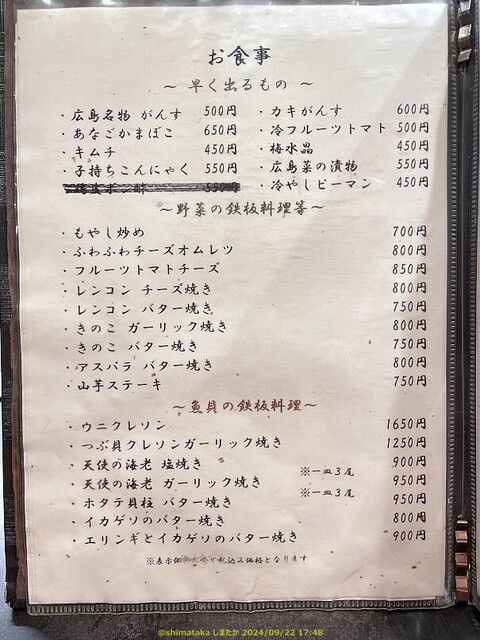 お食事
～ 早く出るもの ～
・広島名物 がんす 500円
・あなごかまぼこ 650円
・キムチ 450円
・子持ちこんにゃく 550円
ポン酢 550円
・カキがんす 600円
・冷フルーツトマト 500円
・梅水晶 450円
・広島菜の漬物 550円
・冷やしピーマン 450円
～野菜の鉄板料理等～
・もやし炒め 700円
・ふわふわチーズオムレツ 800円
・フルーツトマトチーズ 850円
・レンコン チーズ焼き 800円
・レンコン バター焼き 750円
・きのこ ガーリック焼き 800円
・きのこ バター焼き 750円
・アスパラ バター焼き 800円
・山芋ステーキ 750円
～魚貝の鉄板料理～
・ウニクレソン 1650円
・つぶ貝クレソンガーリック焼き 1250円
・天使の海老 塩焼き ※一皿3尾 900円
・天使の海老 ガーリック焼き ※一皿3尾 950円
・ホタテ貝柱 バター焼き 950円
・イカゲソのバター焼き 800円
・エリンギとイカゲソのバター焼き 900円
※表示価 税込み価格となります
@shimataka しまたか 2024/09/22 17:48